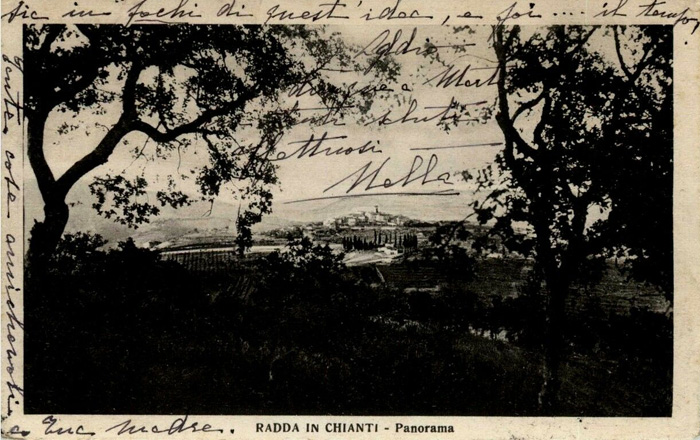 in pochi di quest'idea, e poi .... il tempo,
Addio -
dunque a
saluti
affettuosi -
Mella
Tante cose amichevoli
a Sua madre.
RADDA IN CHIANTI - Panorama